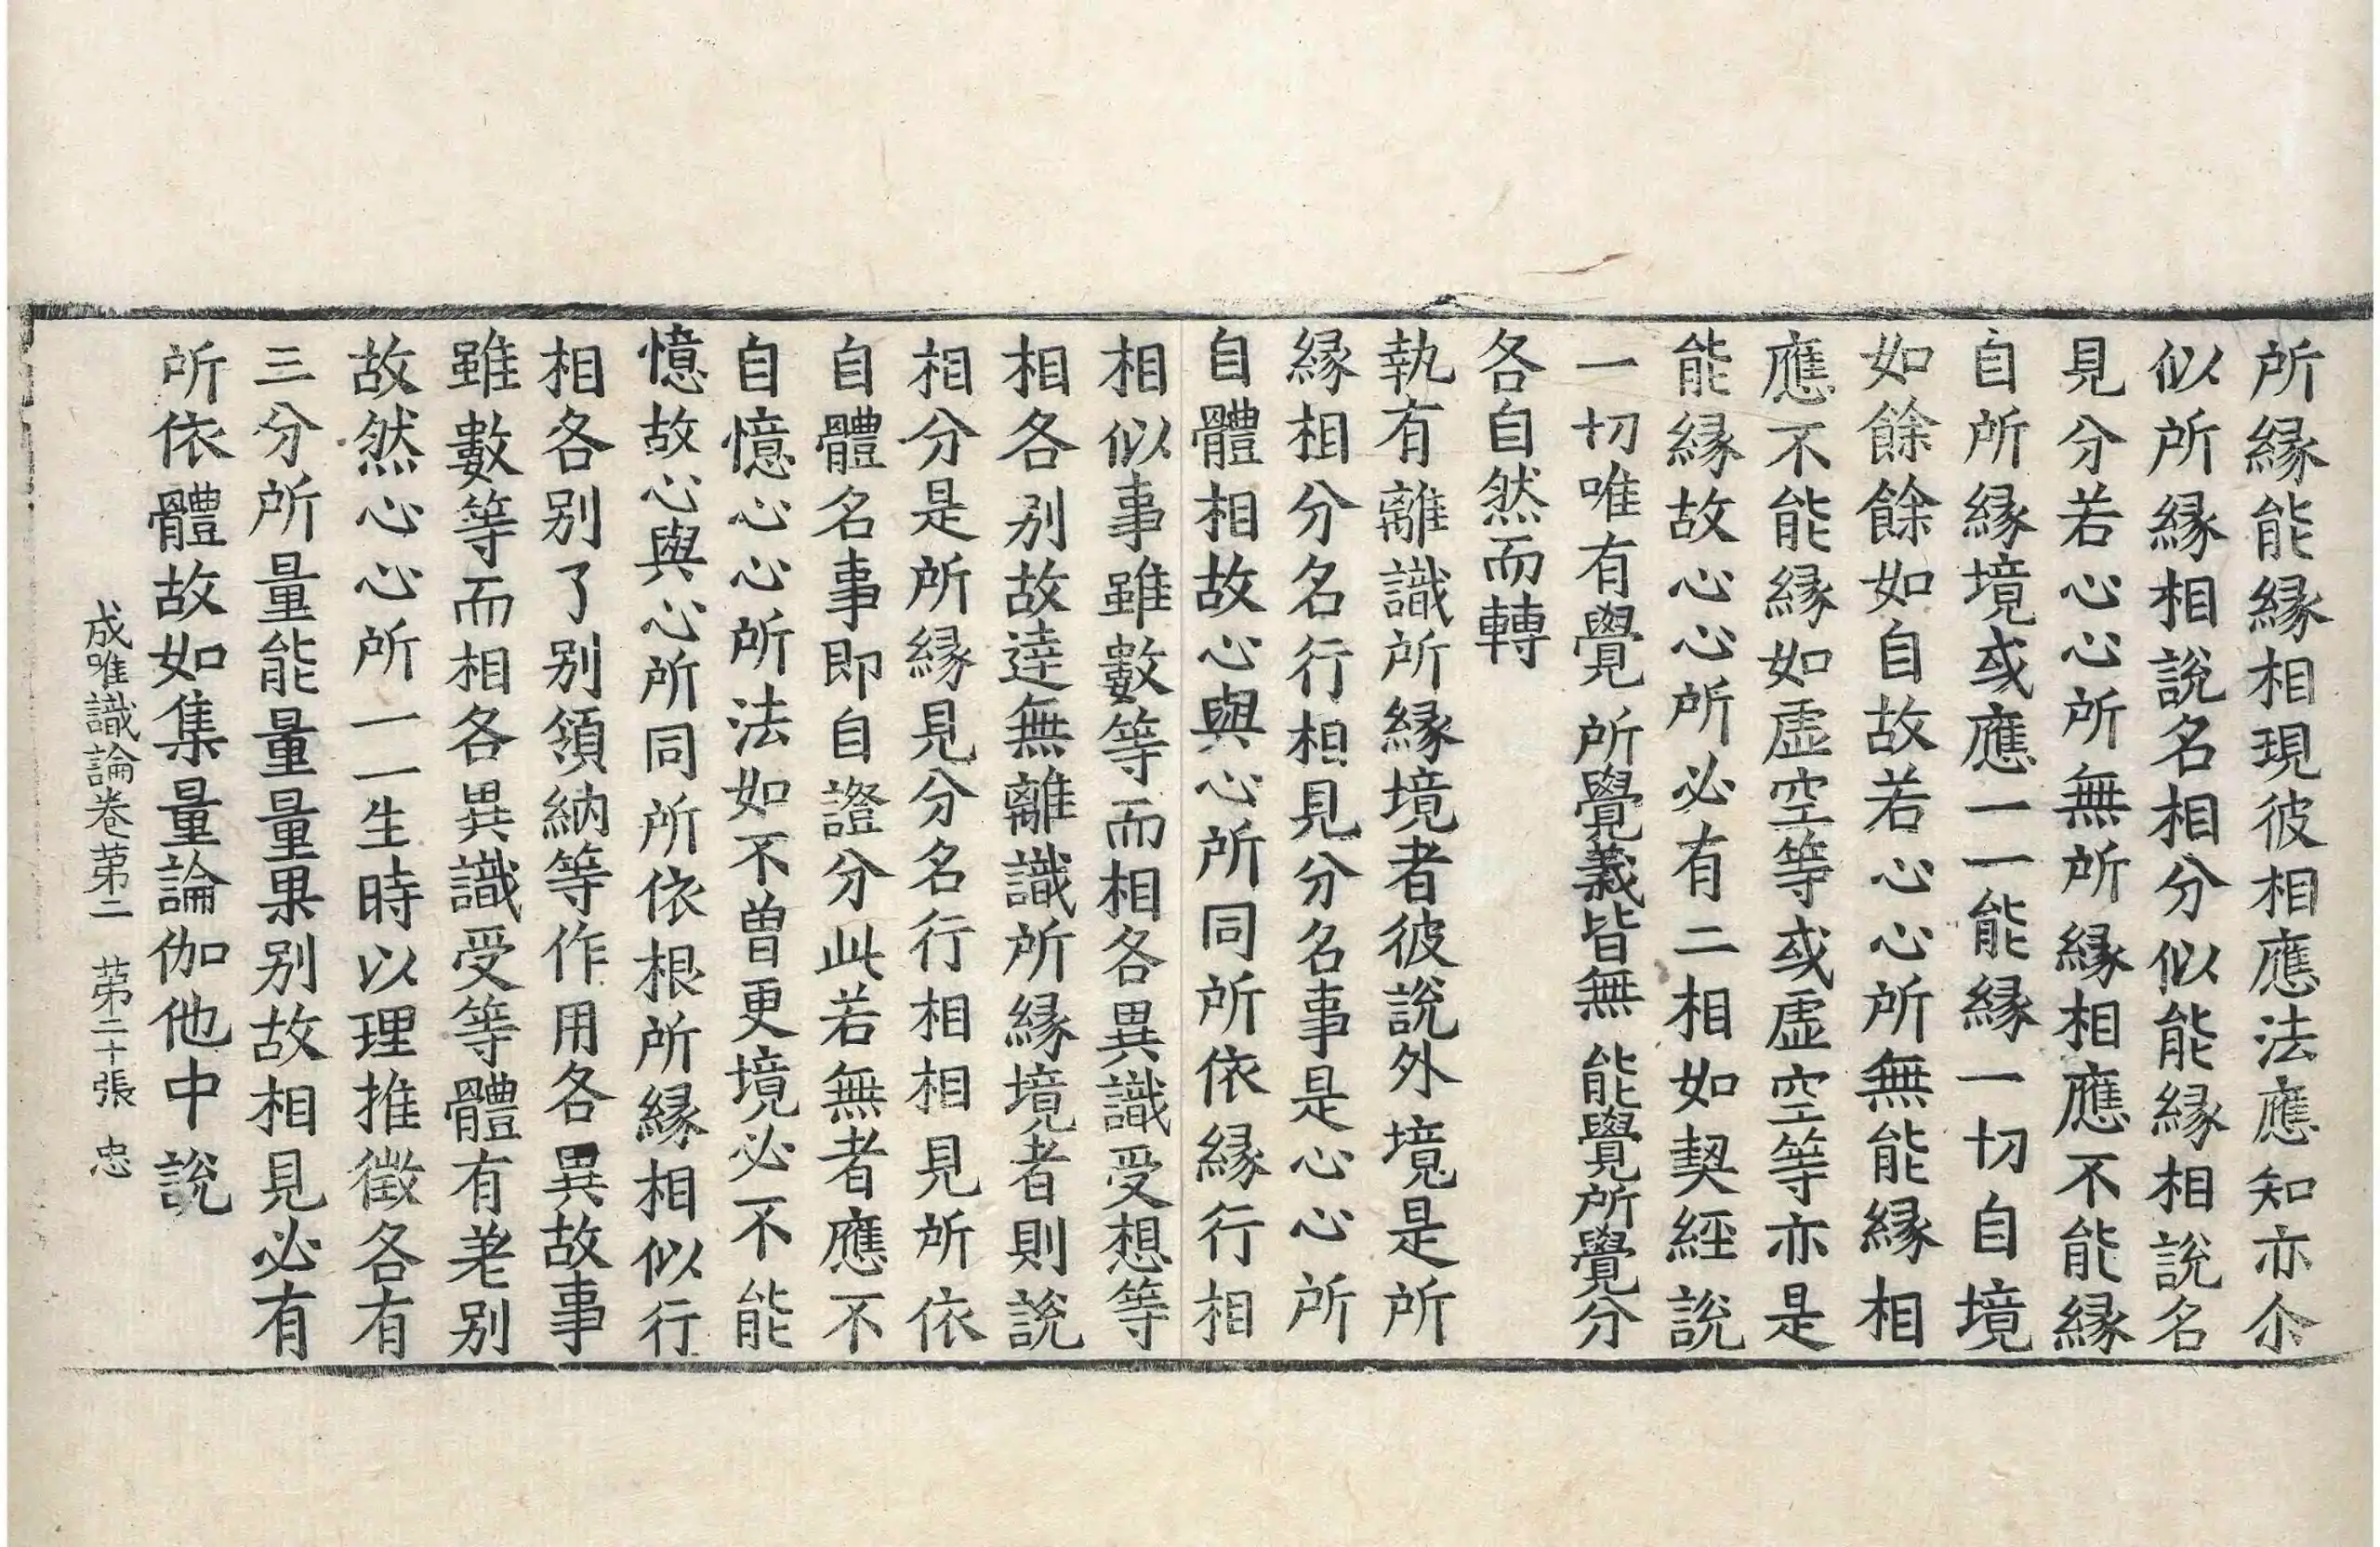 所縁能縁相現彼相應法應知亦尒
似所縁相說名相分似能縁相說名
見分若心心所無所縁相應不能縁
自所縁境或應一一能縁一切自境
如餘餘如自故若心心所無能縁相
應不能縁如虛空等或虛空等亦是
能縁故心心所必有二相如契經說
一切唯有覺 所覺義皆無 能覺所覺分
各自然而轉
執有離識所縁境者彼說外境是所
縁相分名行相見分名事是心心所
自體相故心與心所同所依縁行相
相似事雖數等而相各異識受想等
相各别故逹無離識所縁境者則說
相分是所縁見分名行相相見所依
自體名事即自證分此若無者應不
自憶心心所法如不曾更境必不能
憶故心與心所同所依根所縁相似行
相各别了别領納等作用各異故事
雖數等而相各異識受等體有差别
故然心心所一一生時以理推徵各有
三分所量能量量果别故相見必有
所依體故如集量論伽他中說
成唯識論卷苐二 苐二十張 忠